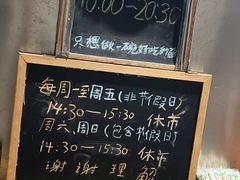 10:00-20:30
只想做一碗好吃的面
每周一至周五(非节假日)
14:30-15:30 休市
周六、周日(包含节假日)
14:30-15:30 休市
谢谢理解